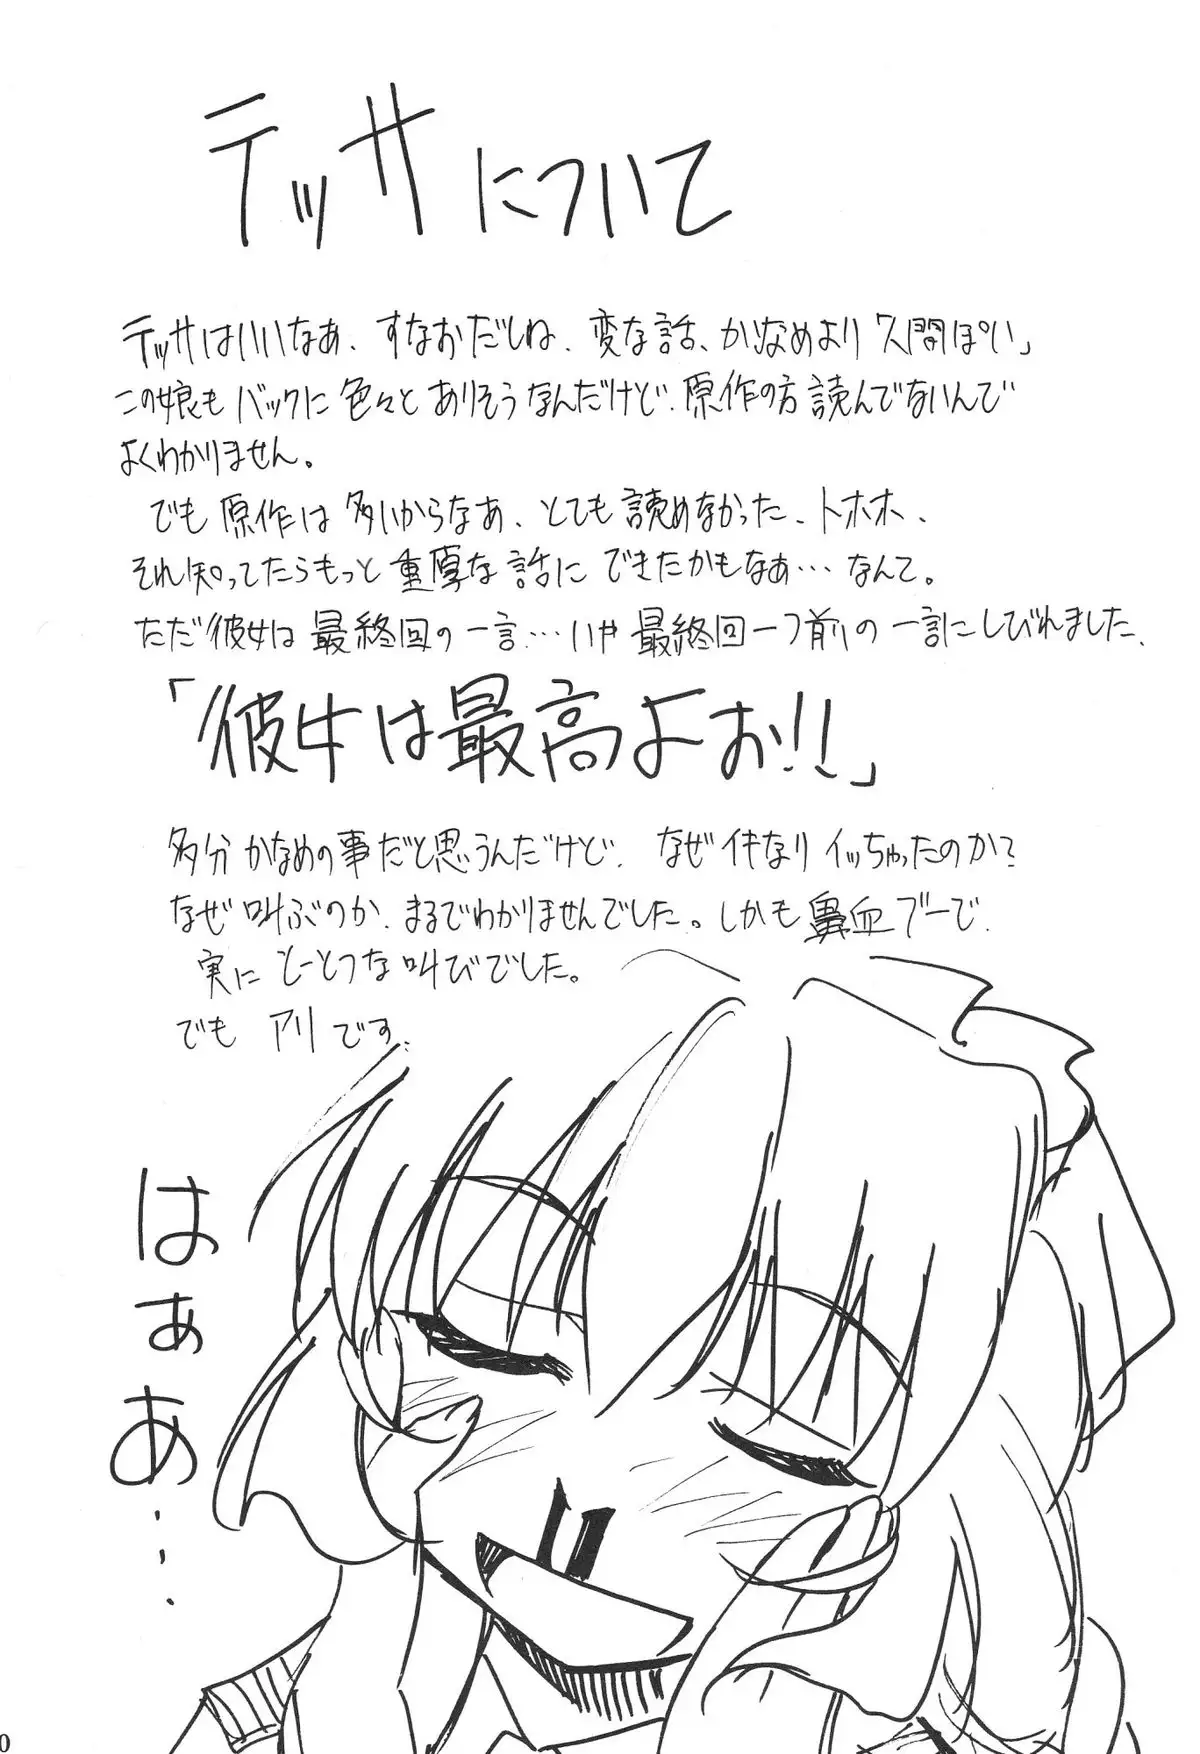 テッサについて
テッサはいいなぁ、すなおだしね、変な話、かなめより人間ぽい」
この娘もバックに色々とありそうなんだけど、原作の方読んでないんで
よくわかりません。
でも原作は多いからなぁ、とても読めなかった、トホホ、
それ知ってたらもっと重厚な話にできたかもなぁ…なんて。
ただ彼女は最終回の一言…いや最終回一つ前の一言にしびれました、
「彼女は最高よぉ!!」
多分かなめの事だと思うんだけど、なぜイキなりイッちゃったのか?
なぜ叫ぶのか、まるでわかりませんでした。しかも鼻血ブーで、
実にとーとつな叫びでした。
でもアリです、
はぁあ・・・
0